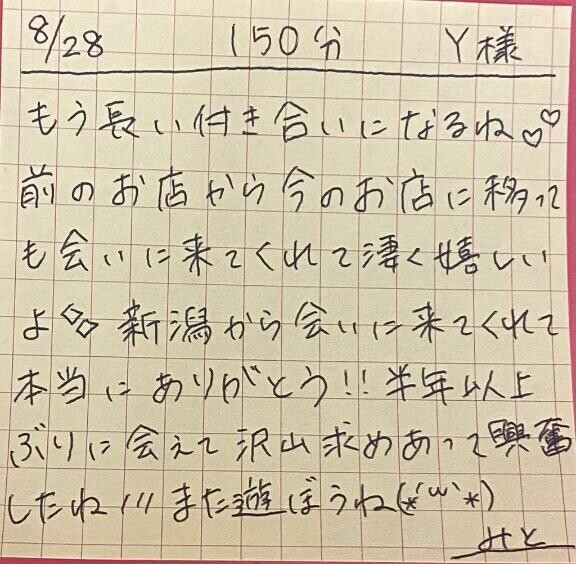 8/28 150分 Y様
もう長い付き合いになるね♡♡
前のお店から今のお店に移って
も会いに来てくれて凄く嬉しい
よ◇◇ 新潟から会いに来てくれて
本当にありがとう!! 半年以上
ぶりに会えて沢山求めあって興奮
したね!!! また遊ぼうね(*'ω'*)
みと